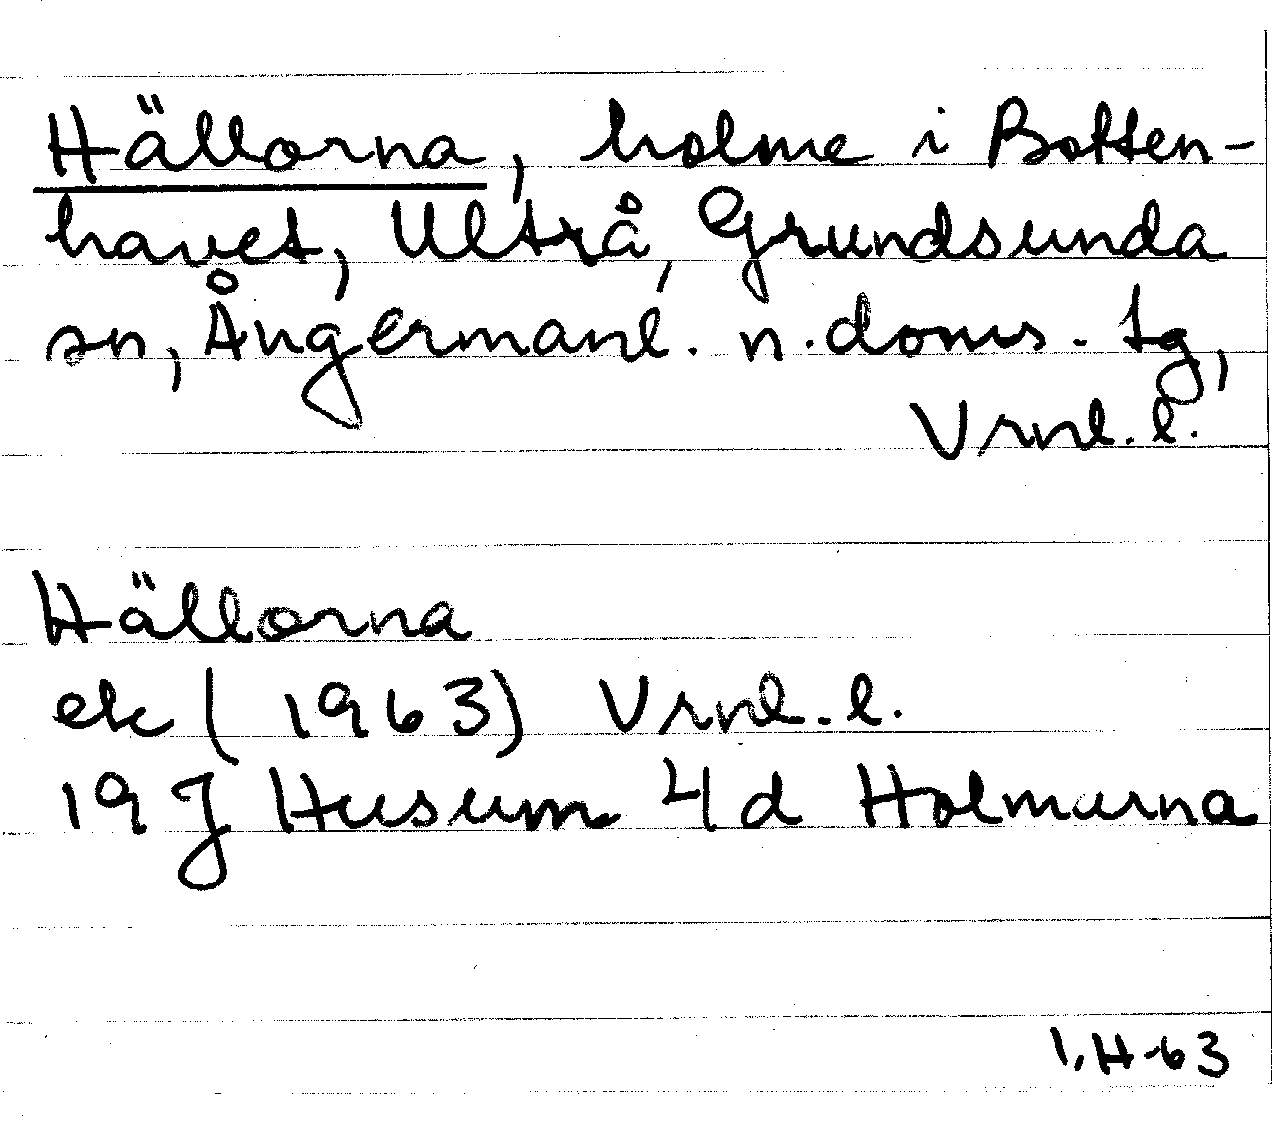 Hällorna, holme i Botten-
havet, Ultrå, Grundsunda
sn, Ångermanl. n. doms. tg,
Vrnl. l.
Hällorna
ek (1963) Vrnl. l.
19 J Husum 4d Holmarna
I.H-63